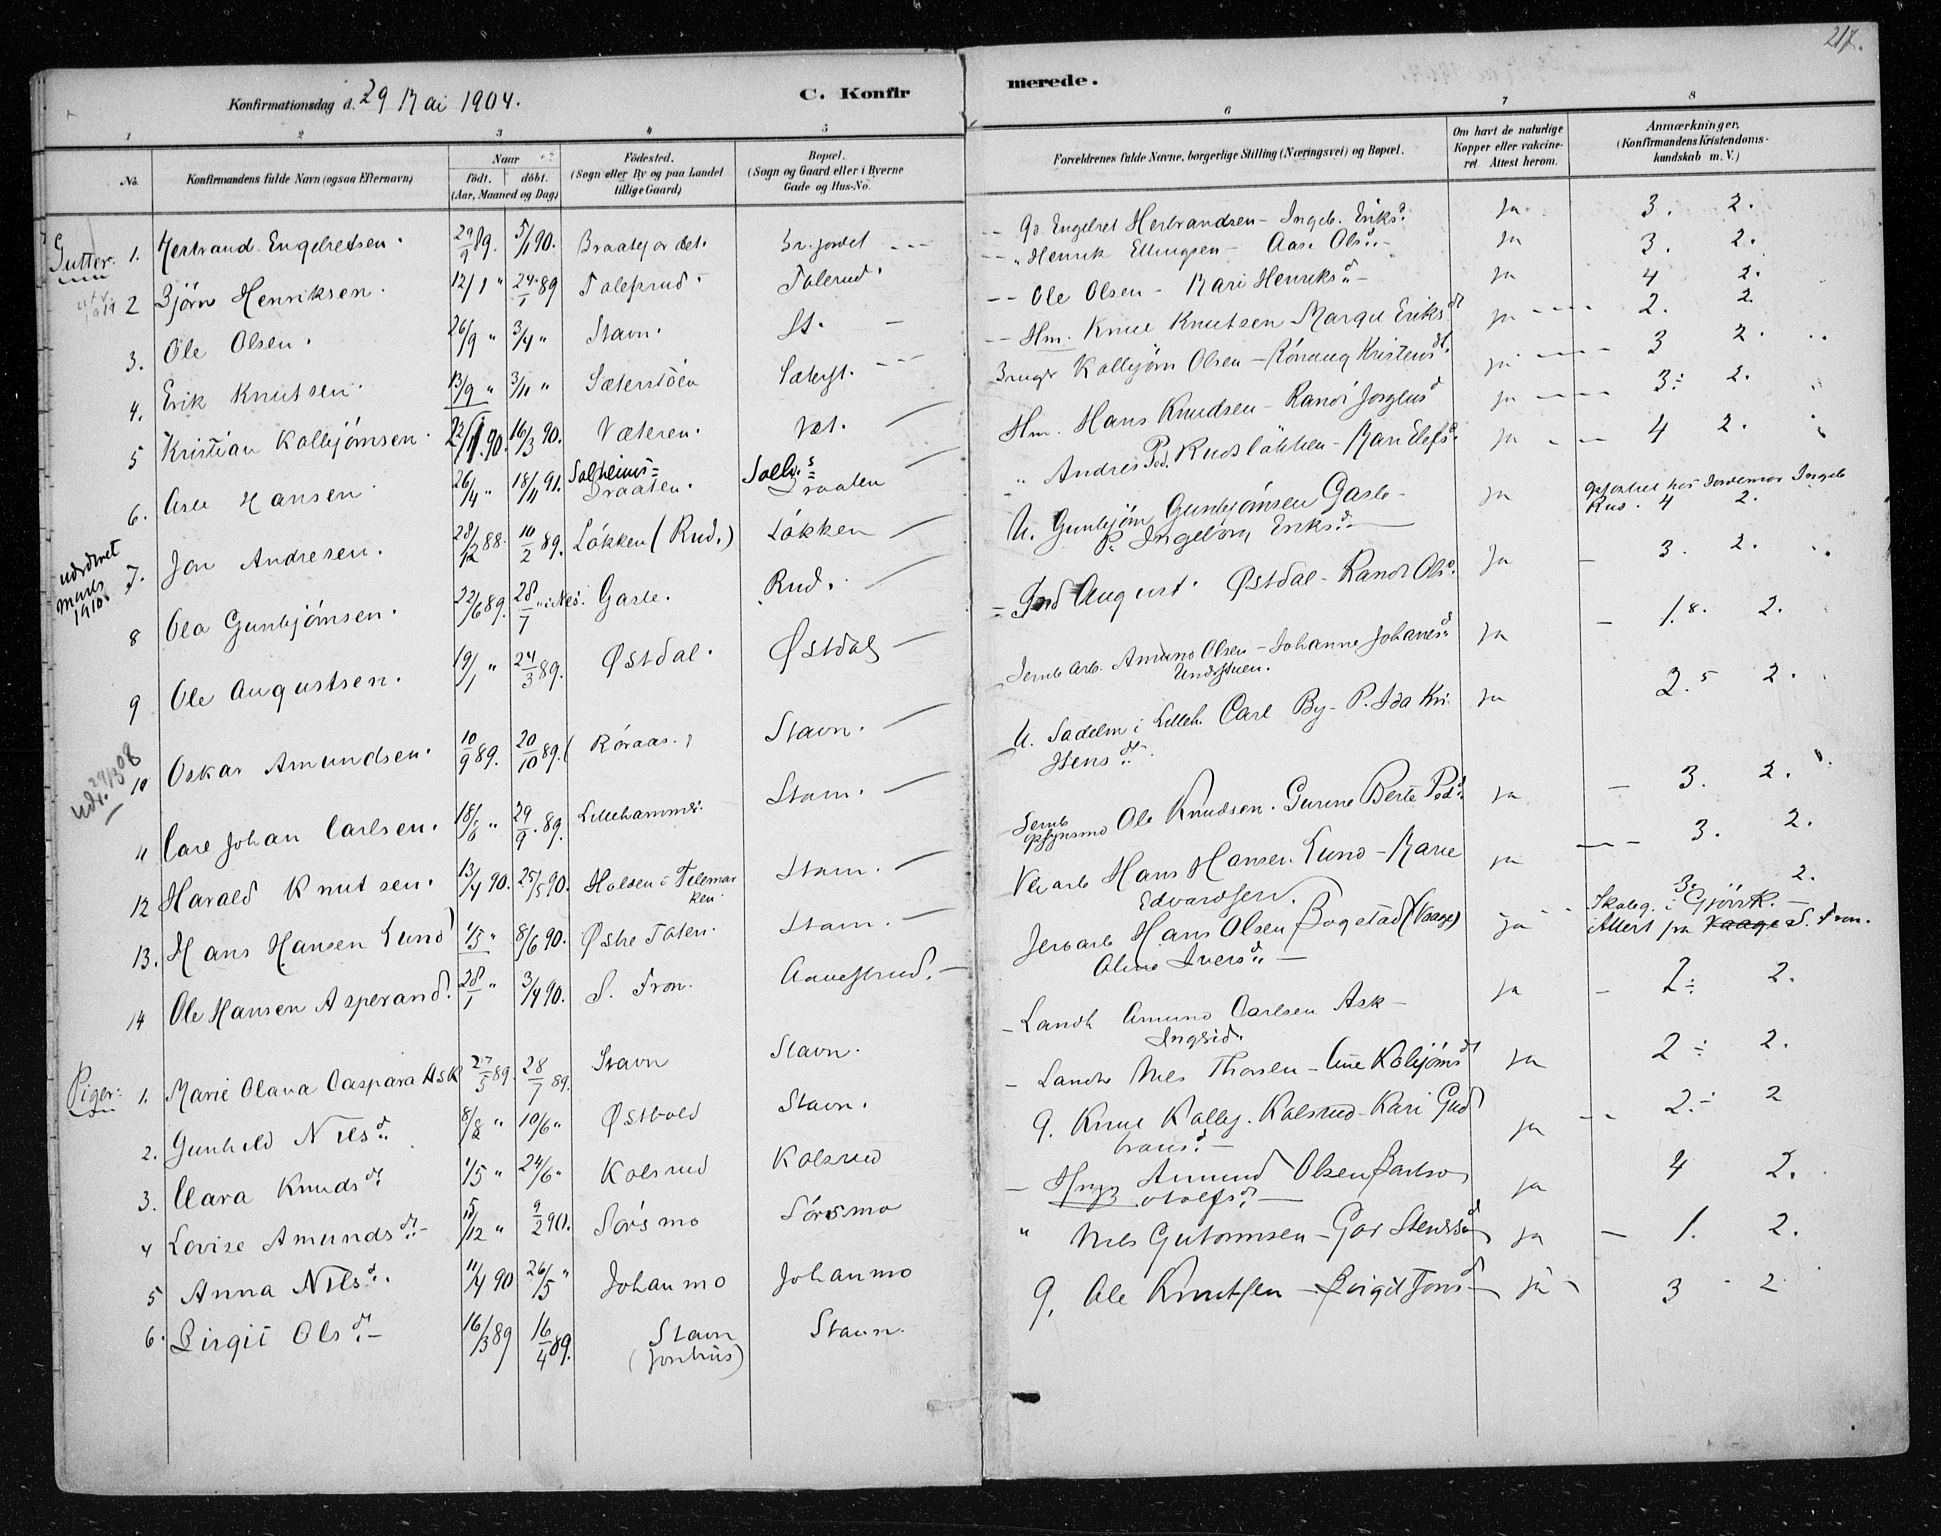 217.
Konfirmationsdag d. 29 Mai 1904.
C. Konfir
merede.
1 2 3 4 5 6 7 8
No.
Konfirmandens fulde Navn (ogsaa Efternavn)
Naar
födt. döbt.
(Aar, Maaned og Dag)
Födested.
(Sogn eller By og paa Landet
tillige Gaard)
Bopæl.
(Sogn og Gaard eller i Byerne
Gade og Hus-No.
Forældrenes fulde Navne, borgerlige Stilling (Næringsvei) og Bopæl.
Om havt de naturlige
Kopper eller vakcine-
ret Attest herom.
Anmærkninger.
(Konfirmandens Kristendoms-
kundskab m. V.)
Gutter: 1. Herbrand Engebretsen. 29/9 89. 5/1 90. Braatejordet. Br. jordet -- G. Engebret Herbrandsen - Ingeb. Eriksd. ja 3. 2.
2 Björn Henriksen. 12/1 " 24/1 89 Tolefsrud. Tolerud. -- " Henrik Ellingsen - Aase Olsd. ja 3. 2.
3. Ole Olsen. 26/9 " 3/4 " Stavn. St. -- Ole Olsen - Kari Henriksd. ja 4 2.
4. Erik Knutsen. 13/9 " 3/11 " Sæterstöen Sæterst. -- Hm. Knut Knutsen Margit Eriksd ja 2. 2.
5 Kristian Kolbjörnsen. 22/1 90. 16/3 90. Væteren. Væt. Bruger Kolbjörn Olsen - Rönaug Kristensdt. ja 3 2.
6. Arne Hansen 26/4 " 18/11 91. Solheims= Braaten. Solh.s= Braaten Hm. Hans Knudsen - Randi Jorgensd ja 3÷ 2.
udskrevet Marts 1910. 7. Jon Andresen. 28/12 88. 10/2 89. Lökken (Rud.) Lökken " Andres Ped. Rudslökken - Mari Elefsd. ja 4 2.
8 Ola Gunbjörnsen. 22/6 89. 28/7 " i Nes. Garle. Rud. U. Gunbjörn Gunbjörnsen Garle - ja Opfostret hos Jordemor Ingeb
P. Ingeborg Eriksd. Rus. 4 2.
9 Ole Augustsen. 19/1 " 24/3 89. Østdal. Østdal = Ind August Østdal - Randi Olsd. ja 3. 2.
udt. 29/3 08 10 Oskar Amundsen. 10/9 89. 20/10 89. (Röraas.) Stavn. Jernb arb. Amund Olsen - Johanne Johanesd. ja 1.8. 2.
11 Carl Johan Carlsen. 18/8 " 29/9 89. Lillehammer. Stavn. U. Sadelm i Lilleh. Carl By - P. Ida Kri ja 2.5 2.
stensdt.
12 Harald Knutsen. 13/4 90. 25/5 90. Holden i Telemar Stavn. Jernb Ole Knudsen. Gurine Berte Pedd. ja 3. 2.
ken. opsynsmd
13. Hans Hansen Lund 1/5 " 8/6 90. Østre Toten. Stavn. Vei arb Hans Hansen Lund - Marie ja 3. 2.
Edvardsen.
14 Ole Hansen Asperand. 28/1 " 3/4 90. S. Fron. Aavestrud. Jerv arb Hans Olsen Bogstad (Vaage) ja Skoleg. i Gjövik. 3. 2.
Oline Iversd. Attest fra Vaage S. Fron.
Piger: 1. Marie Olava Caspara Ask 27/5 89. 28/7 89. Stavn Stavn. - Landh Amund Carlsen Ask - ja 2÷ 2.
Ingrid.
2. Gunhild Nilsd. 8/8 " 10/6 " Østvold Stavn. - Landh Nils Thorsen - Une Kolbjörnsd ja 2÷ 2.
3. Clara Knudsdt. 1/5 " 24/6 " Kolsrud Kolsrud G. Knut Kolbj. Kolsrud - Kari Gud ja 2.÷ 2
bransd.
4 Lovise Amundsdt. 15/12 " 9/2 90. Sörsmo Sörsmo - Amund Olsen Barbro ja 4 2.
5 Anna Nilsd. 11/4 90 26/5 " Johanmo Johanmo " Nils Gutormsen - Gor Stensd ja 1. 2.
6. Birgit Olsdt. 16/3 89 16/4 89. Stavn Stavn. G. Ole Knutsen - Birgit Jonsd ja 3 2
(Jonhus)